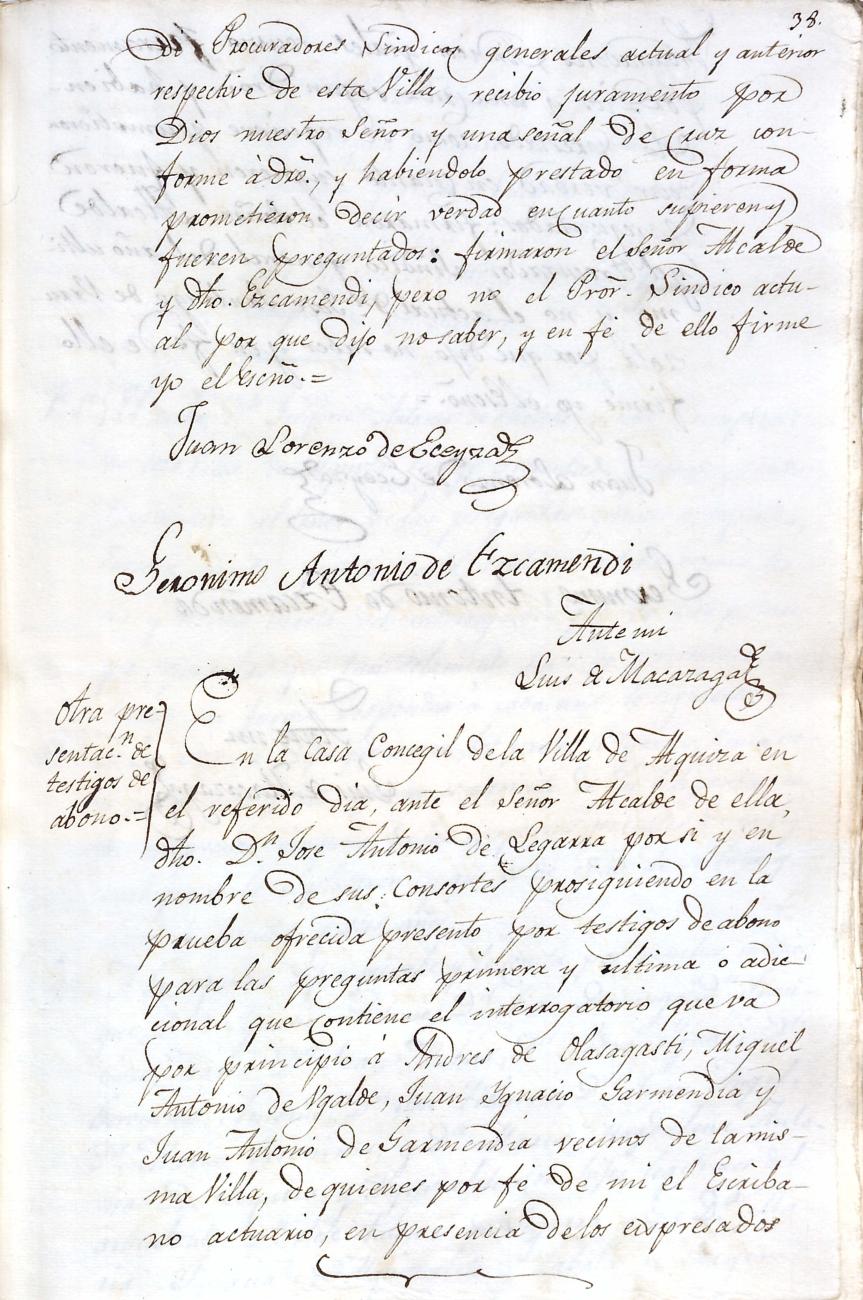 38.
de Procuradores Sindicos generales actual y anterior
respective de esta Villa, recibio juramento por
Dios nuestro Señor y una señal de Cruz con-
forme à dro., y habiendolo prestado en forma
prometieron decir verdad en cuanto supieren y
fueren preguntados: firmaron el Señor Alcalde
y dho. Ezcamendi, pero no el Pror. Sindico actu-
al por que dijo no saber, y en fé de ello firme
yo el Escño.=
Juan Lorenzo de Eceyza
Geronimo Antonio de Ezcamendi
Ante mi
Luis de Macazaga
Otra pre-
sentac.n de
testigos de
abono.=
En la Casa Concegil de la Villa de Alquiza en
el referido dia, ante el Señor Alcalde de ella,
dho. D.n Jose Antonio de Legarra por si y en
nombre de sus Consortes prosiguiendo en la
prueba ofrecida presento por testigos de abono
para las preguntas primera y ultima ó adic-
cional que contiene el interrogatorio que va
por principio á Andres de Olasagasti, Miguel
Antonio de Ugalde, Juan Ygnacio Garmendia y
Juan Antonio de Garmendia vecinos de la mis-
ma Villa, de quienes por fé de mi el Escriba-
no actuario, en presencia de los espresados